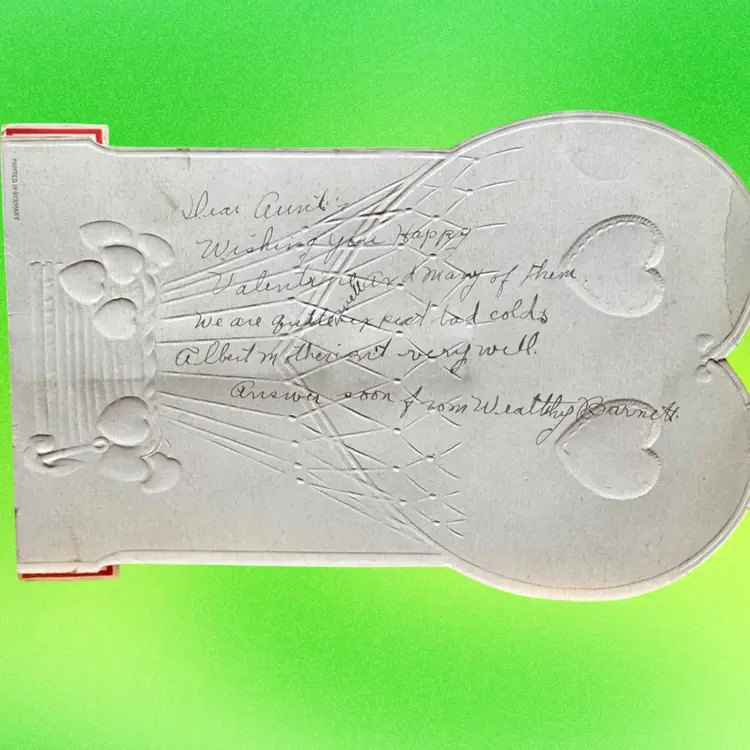 Dear Auntis
Wishing you Happy
Valentine and many of them.
We are quite well except bad colds
Albert mother isn't very well.
Answer soon from Wealthy Barnett.
PRINTED IN GERMANY